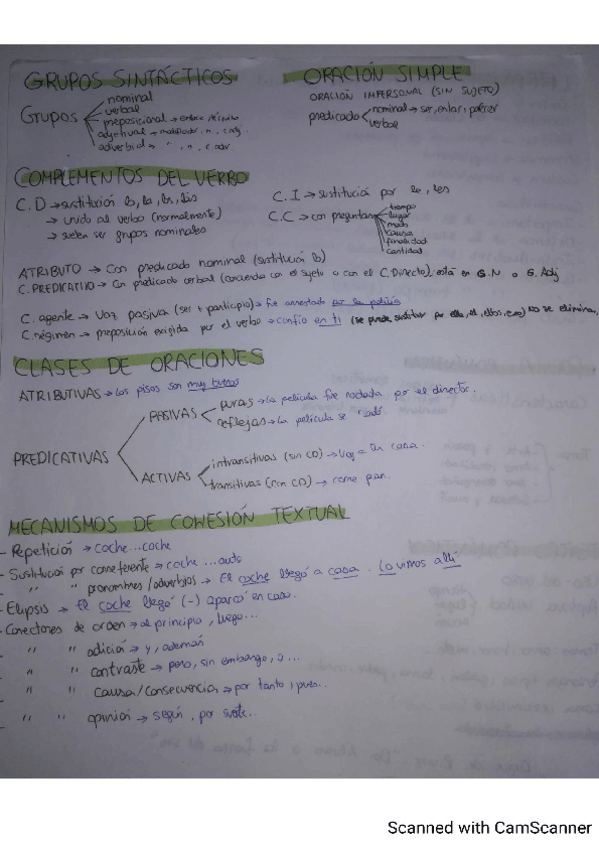 GRUPOS SINTÁCTICOS
Grupos
nominal
verbal
preposicional → enlace + término
adjetival → modificador, n, c adj.
adverbial → " , n, c. adv.
ORACIÓN SIMPLE
ORACIÓN IMPERSONAL (SIN SUJETO)
predicado
nominal → ser, estar, parecer
verbal
COMPLEMENTOS DEL VERBO
C.D → sustitución lo, la, los, las
→ unido al verbo (normalmente)
→ suelen ser grupos nominales
C.I → sustitución por le, les
C.C → con preguntas
tiempo
lugar
modo
causa
finalidad
cantidad
ATRIBUTO → Con predicado nominal (sustitución lo)
C.PREDICATIVO → Con predicado verbal (concuerda con el sujeto o con el C.Directo), está en G.N o G.Adj
C. agente → Voz pasiva (ser + participio) → fue arrestado por la policía
C. régimen → preposición exigida por el verbo → confío en ti (se puede sustituir por ella, él, ellos, eso) NO se elimina.
CLASES DE ORACIONES
ATRIBUTIVAS → Los pisos son muy buenos
PREDICATIVAS
PASIVAS
puras → La película fue rodada por el director.
reflejas → La película se rodó.
ACTIVAS
intransitivas (sin CD) → Voy a casa.
transitivas (con CD) → come pan.
MECANISMOS DE COHESIÓN TEXTUAL
- Repetición → coche ... coche
- Sustitución por correferente → coche ... auto
" " pronombres/adverbios → El coche llegó a casa. Lo vimos allí
- Elipsis → El coche llegó (-) aparcó en casa.
- Conectores de orden → al principio, luego...
- " " adición → y, además
- " " contraste → pero, sin embargo, o ...
- " " causa/consecuencia → por tanto, pues..
- " " opinión → según, por suerte..
Scanned with CamScanner